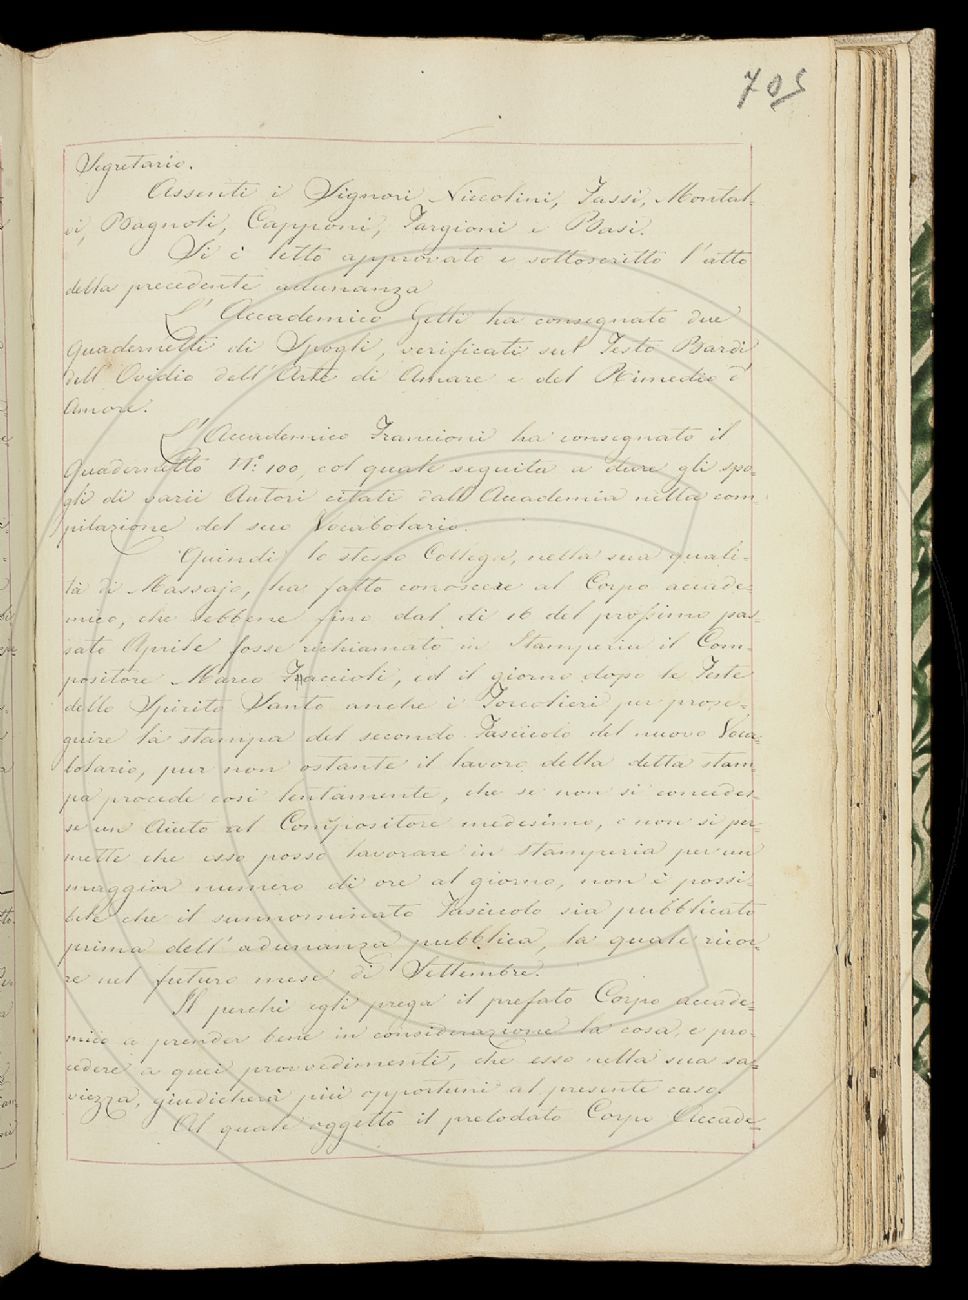 705
Segretario.
Assenti i Signori Niccolini, Tassi, Montal-
vi, Bagnoli, Capponi, Targioni e Basi.
Si è letto approvato e sottoscritto l'atto
della precedente adunanza
L'Accademico Gelli ha consegnato due
Quadernetti di Spogli, verificati sul Testo Bardi
dell'Ovidio dell'Arte di Amare e del Rimedio d'
Amore.
L'Accademico Francioni ha consegnato il
Quadernetto N.º 100, col quale seguita a dare gli spo-
gli di varii Autori citati dall'Accademia nella com-
pilazione del suo Vocabolario.
Quindi lo stesso Collega, nella sua quali-
tà di Massajo, ha fatto conoscere al Corpo accade-
mico, che sebbene fino dal dì 16 del prossimo pas-
sato Aprile fosse richiamato in Stamperia il Com-
positore Marco Fraccioli, ed il giorno dopo le Feste
dello Spirito Santo anche i Torcolieri per prose-
guire la stampa del secondo Fascicolo del nuovo Voca-
bolario, pur non ostante il lavoro della detta stam-
pa procede così lentamente, che se non si concedes-
se un Aiuto al Compositore medesimo, o non si per-
mette che esso possa lavorare in stamperia per un
maggior numero di ore al giorno, non è possi-
bile che il sunnominato Fascicolo sia pubblicato
prima dell'adunanza pubblica, la quale ricor-
re nel futuro mese di Settembre.
Il perchè egli prega il prefato Corpo accade-
mico a prender bene in considerazione la cosa, e pro-
cedere a quei provvedimenti, che esso nella sua sa-
viezza, giudicherà più opportuni al presente caso.
Al quale oggetto il prelodato Corpo Accade-